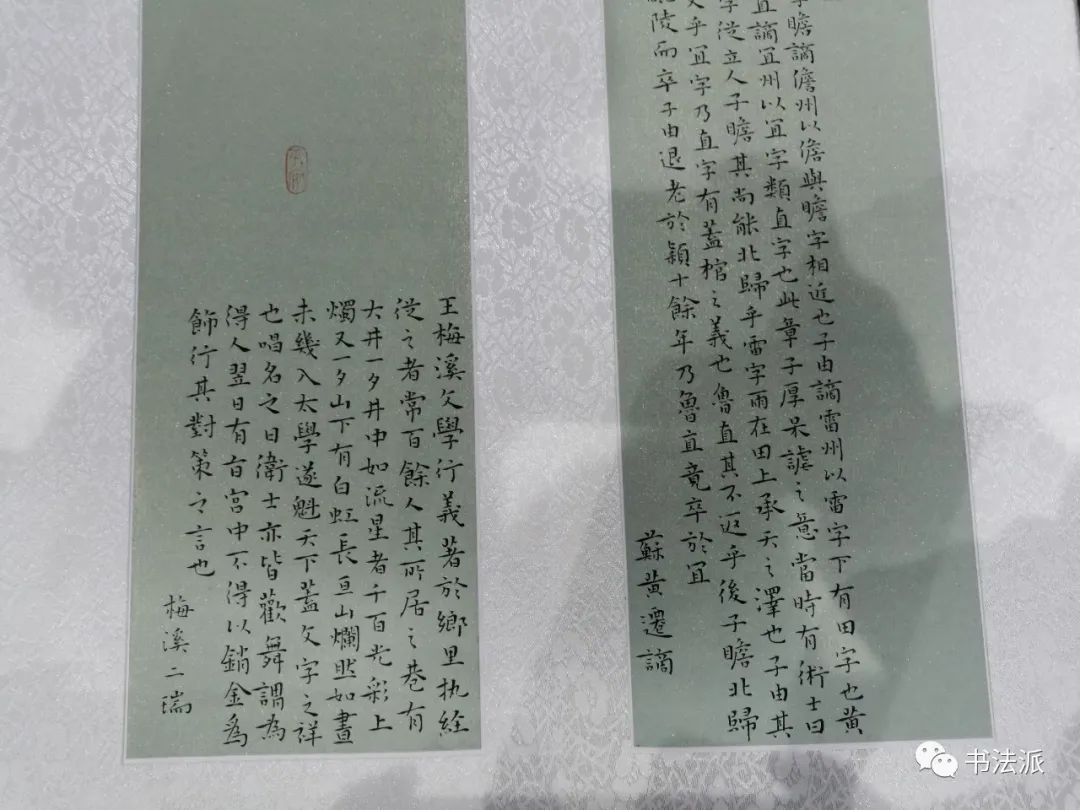 瞻謫儋州以儋與瞻字相近也子由謫雷州以雷字下有田字也黃
直謫宜州以宜字類直字也此章子厚呆謔之意當時有術士曰
字從立人子瞻其尚能北歸乎雷字雨在田上承天之澤也子由其
乎宜字乃直字有蓋棺之義也魯直其不返乎後子瞻北歸
陵而卒子由退老於潁十餘年乃魯直竟卒於宜
蘇黃遷謫
王梅溪文學行義著於鄉里执經
從之者常百餘人其所居之巷有
大井一夕井中如流星者千百光彩上
燭又一夕山下有白虹長亘山爛然如晝
未幾入太學遂魁天下蓋文字之祥
也唱名之日衛士亦皆歡舞謂為
得人翌日有旨宮中不得以銷金為
飾行其對策之言也
梅溪二瑞
书法派